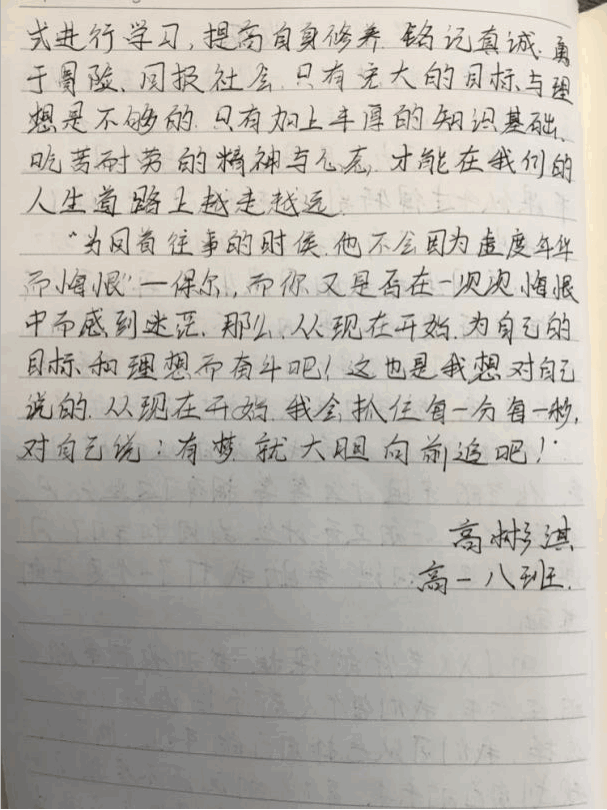 式进行学习，提高自身修养.铭记真诚.勇
于冒险、回报社会.只有宏大的目标与理
想是不够的.只有加上丰厚的知识基础、
吃苦耐劳的精神与心态，才能在我们的
人生道路上越走越远.
“当回首往事的时候.他不会因为虚度年华
而悔恨”—保尔，而你又是否在一次次悔恨
中而感到迷茫.那么，从现在开始.为自己的
目标和理想而奋斗吧！这也是我想对自己
说的.从现在开始.我会抓住每一分每一秒，
对自己说：有梦就大胆向前追吧！
高彬淇
高一八班.